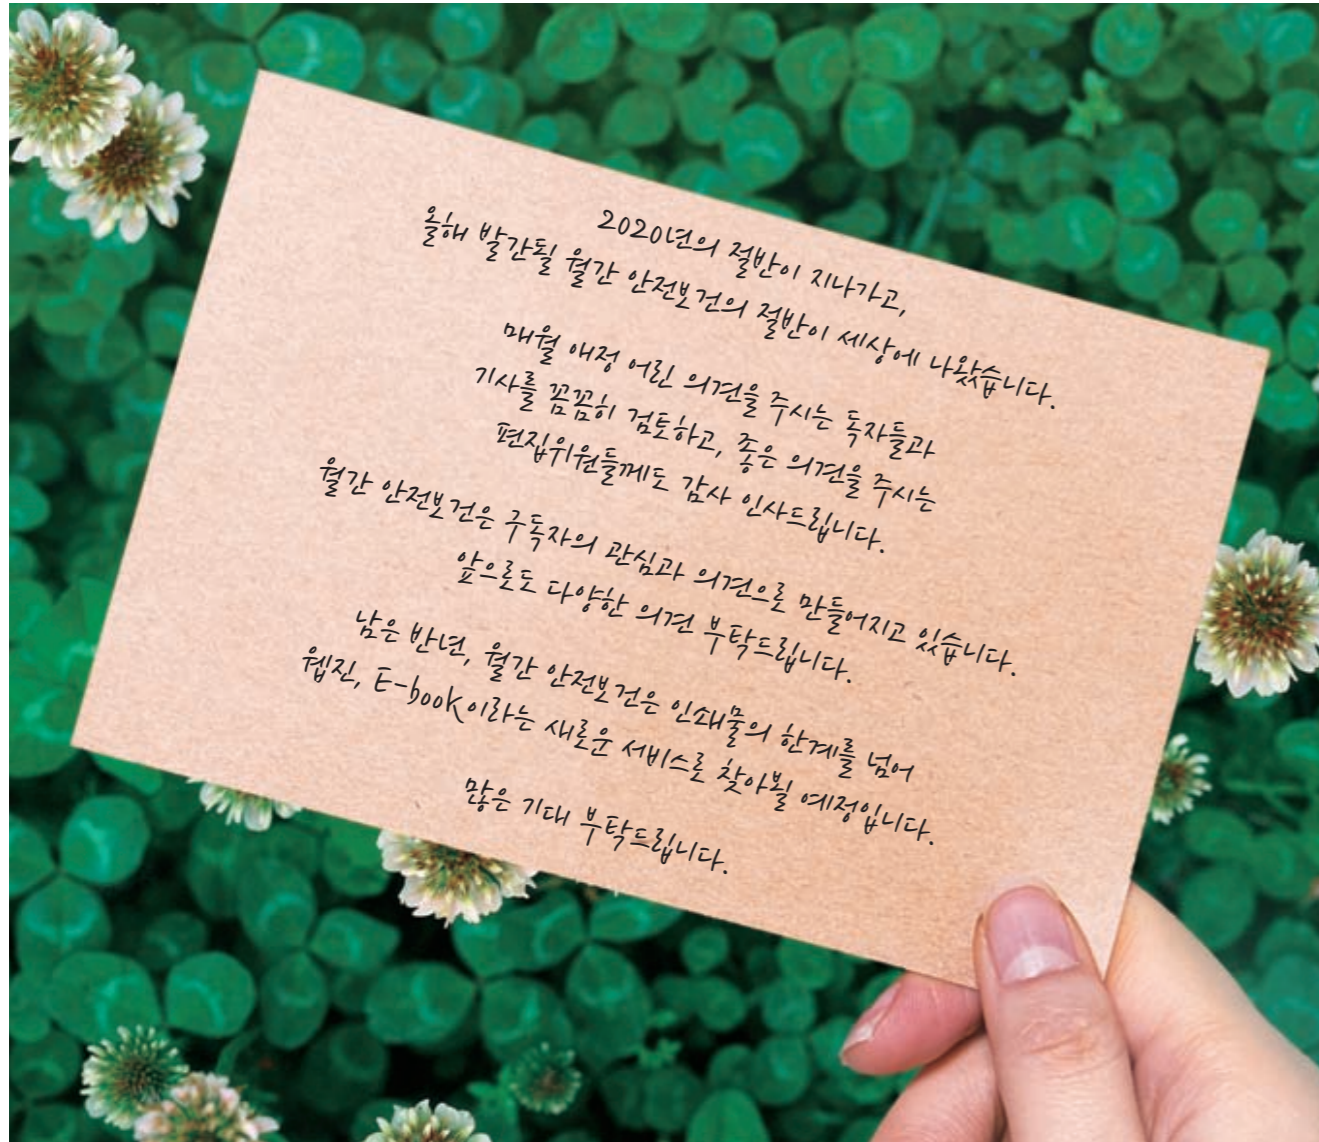 2020년의 절반이 지나가고,
올해 발간될 월간 안전보건의 절반이 세상에 나왔습니다.
매월 애정 어린 의견을 주시는 독자들과
기사를 꼼꼼히 검토하고, 좋은 의견을 주시는
편집위원들께도 감사 인사드립니다.
월간 안전보건은 구독자의 관심과 의견으로 만들어지고 있습니다.
앞으로도 다양한 의견 부탁드립니다.
남은 반년, 월간 안전보건은 인쇄물의 한계를 넘어
웹진, E-book이라는 새로운 서비스로 찾아뵐 예정입니다.
많은 기대 부탁드립니다.